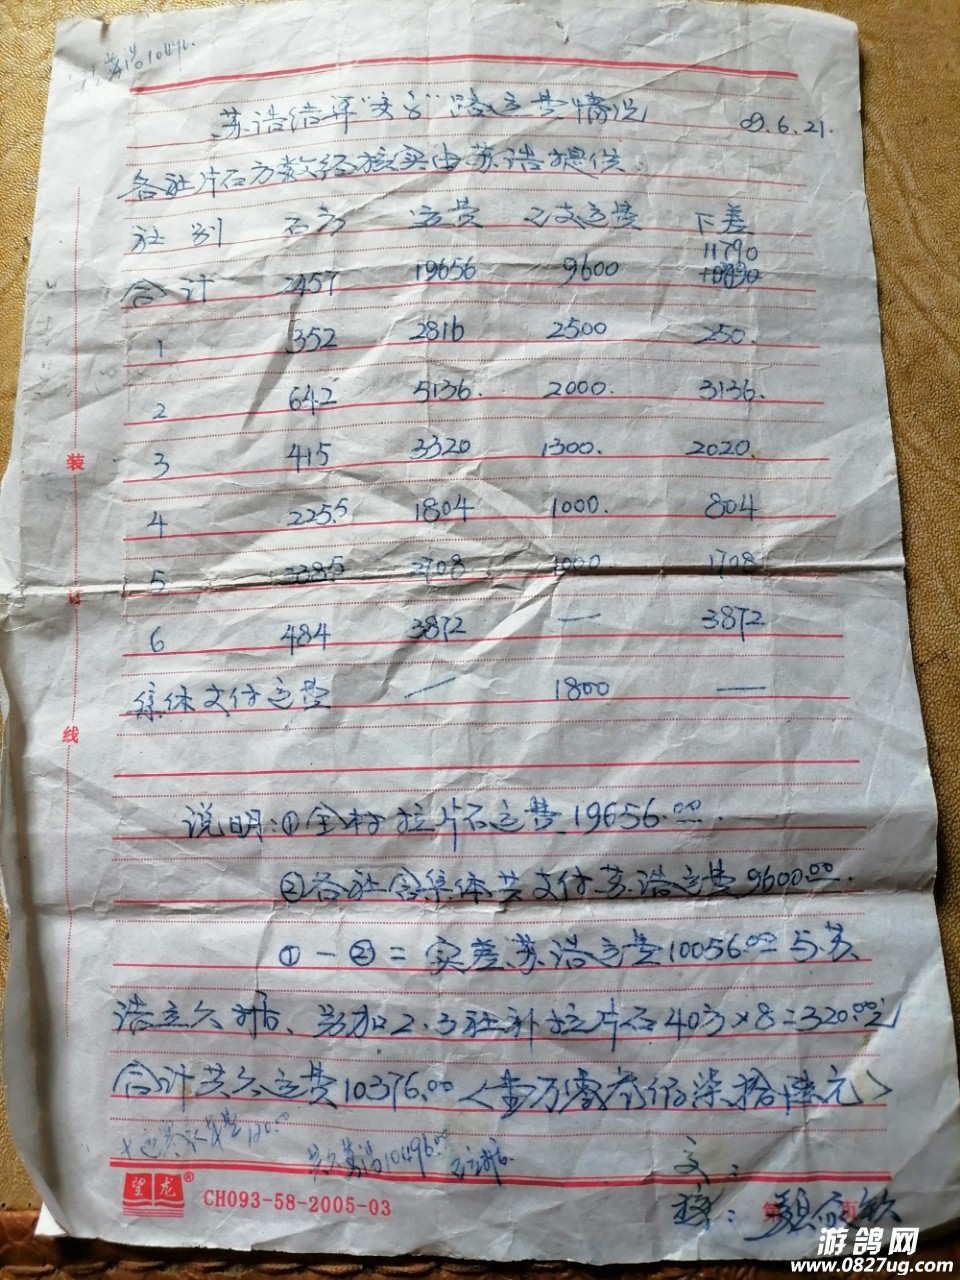 苏浩10496.
苏浩结算"交言"路运费情况 09.6.21.
各社片石方数经核实由苏浩提供.
社别 石方 运费 已支运费 下差
11790
合计 2457 19656 9600
1 352 2816 2500 250.
2 642 5136. 2000. 3136.
3 415 3320 1300. 2020.
4 225.5 1804 1000. 804
5 338.5 2708 1000 1708
6 484 3872 — 3872
集体支付运费 — 1800 —
说明:①全村拉片石运费19656.00.
②各社含集体共支付苏浩运费9600.00.
①-②= 实差苏浩运费10056.00 与苏
浩立欠据、另加2.3社补拉片石40方×8=320.00元
合计共欠运费10376.00<壹万零叁佰柒拾陆元>
120.00
苏浩10496.00
交:
接:
装
订
线
望龙®
CH093-58-2005-03
第 页
游鸽网
www.0827ug.com